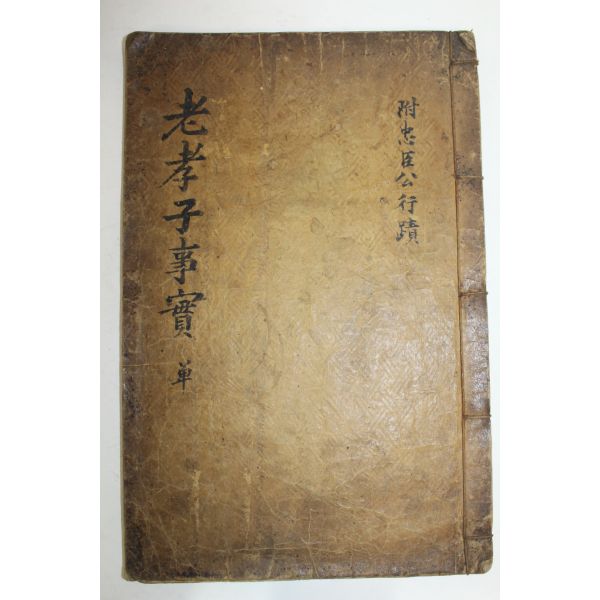 附忠臣公行蹟
老孝子事實 單